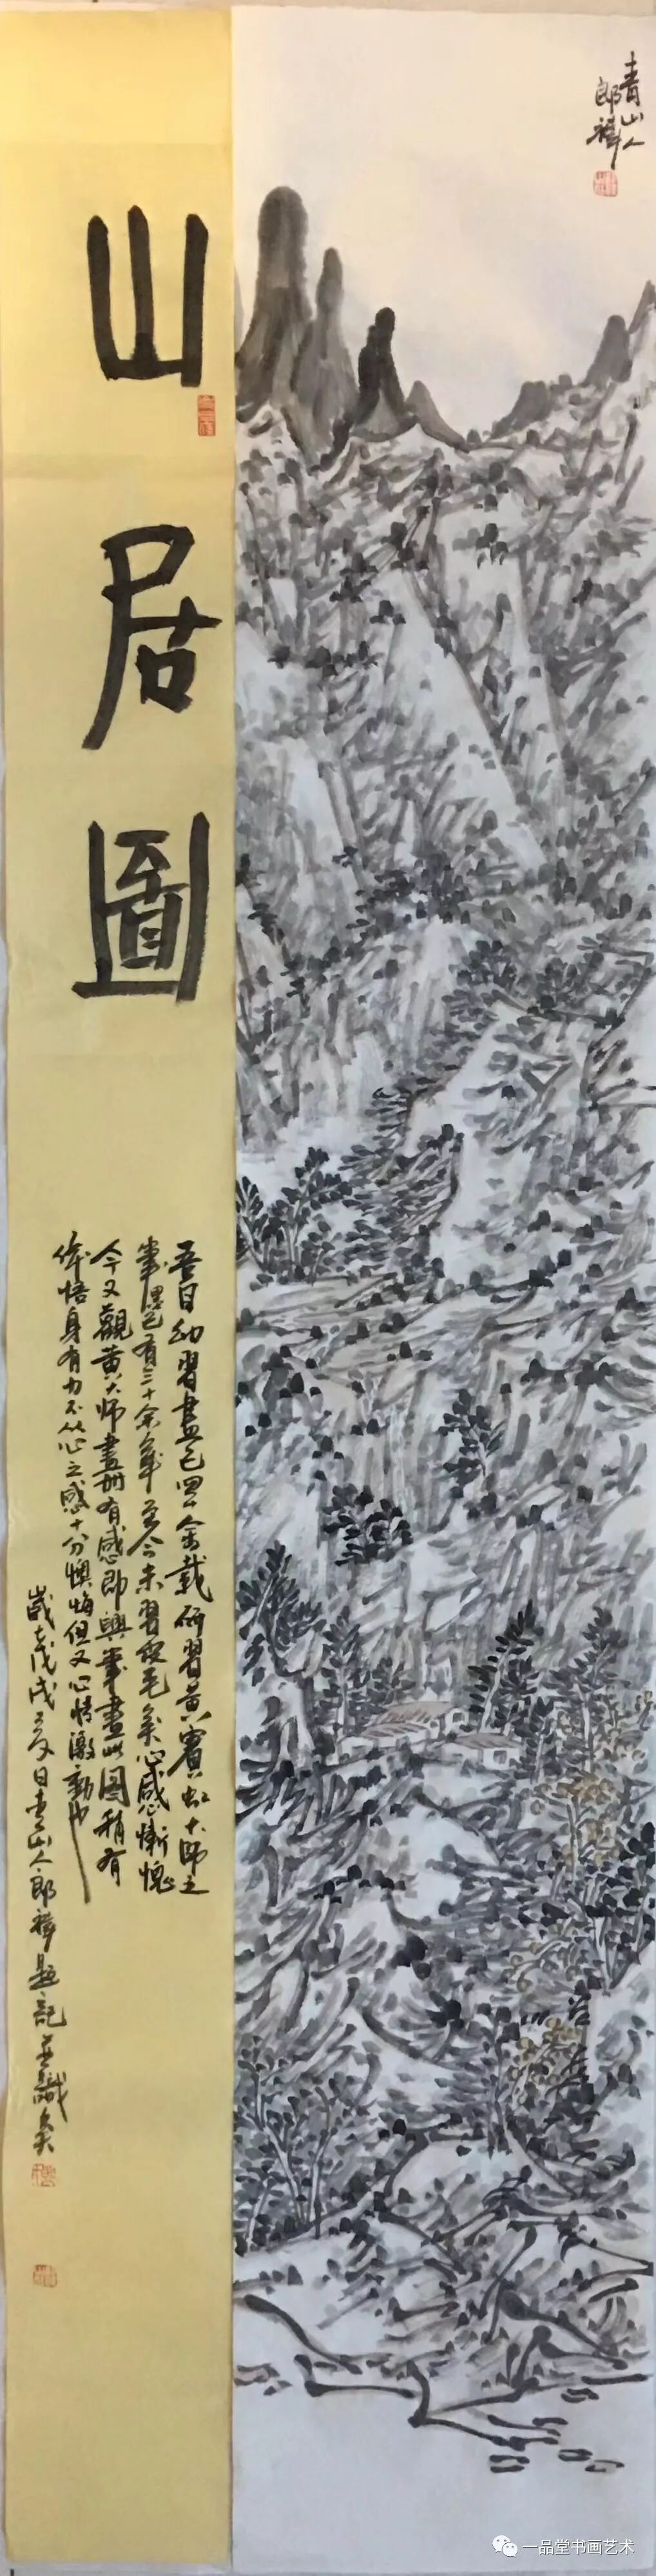 青山人
郎禅
山居圖
吾自幼習畫已四十余載研習黄賓虹大师之
筆墨已有三十余年至今未習皮毛矣心感慚愧
今又觀黄大师畫册有感即興筆畫此图稍有
体悟身有力不从心之感十分懊悔但又心情激動也
歲在戊戌夏日青山人郎禅題記并識矣
一品堂书画艺术